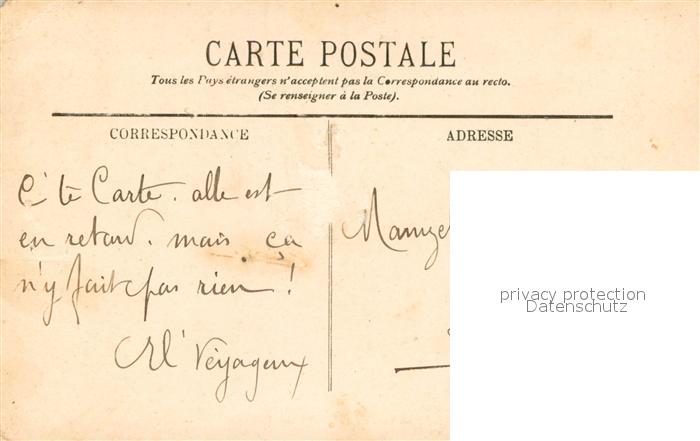 CARTE POSTALE
Tous les Pays étrangers n'acceptent pas la Correspondance au recto.
(Se renseigner à la Poste).
CORRESPONDANCE
ADRESSE
C'te Carte. alle est
en retard. mais ça
n'y fait pas rien !
Mamze
privacy protection
Datenschutz